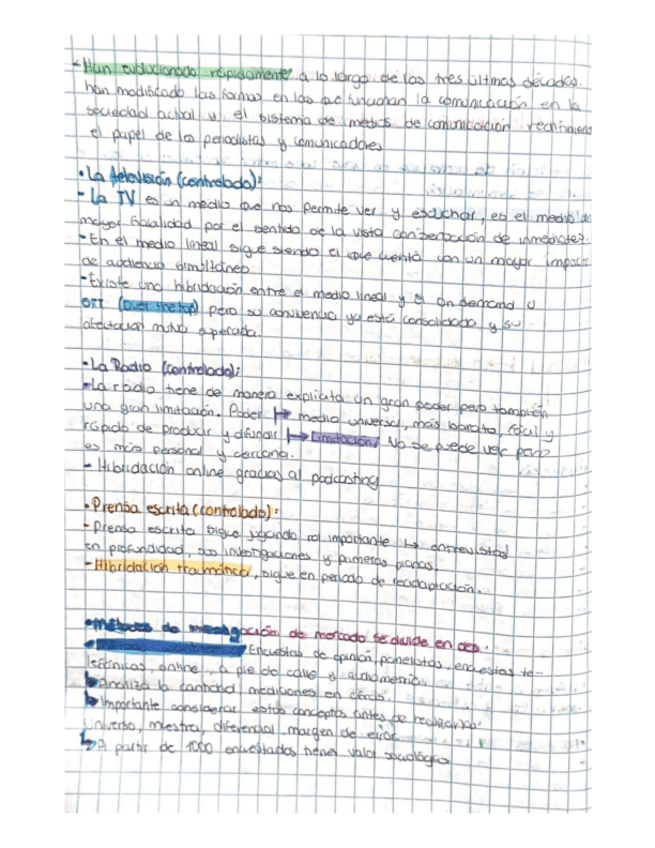 Han evolucionado rápidamente a lo largo de las tres últimas décadas.
han modificado las formas en las que funcionan la comunicación en la
sociedad actual y el sistema de medios de comunicación
el papel de los periodistas y comunicadores
• La televisión (controlada):
- La TV es un medio que nos permite ver y escuchar, es el medio de
mayor fisicalidad por el sentido de la vista con sensación de inmediatez.
- En el medio lineal sigue siendo el que cuenta con un mayor impacto
de audiencia simultáneo
- Existe una hibridación entre el medio lineal y el on demand o
OTT (over the top) pero su convivencia ya está consolidado y su
afectación mutua superada.
• La Radio (controlado):
- La radio tiene de manera explícita un gran poder pero también
una gran limitación. Poder ↦ medio universal, más barato, fácil y
rápido de producir y difundir ↦ Limitación, No se puede ver pero
es más personal y cercana.
- Hibridación online gracias al podcasting
• Prensa escrita (controlado):
- Prensa escrita sigue jugando rol importante ↦ entrevistas
en profundidad, sus investigaciones y primeras planas.
- Hibridación traumática, sigue en periodo de readaptación.
• Métodos de investigación de mercado se divide en dos:
Encuestas de opinión, panelistas, encuestas te-
lefónicas online, a pie de calle y audiometría.
↳ Analiza la cantidad, mediciones en cifras.
↳ Importante considerar estos conceptos antes de realizarlo:
Universo, muestra, diferencial, margen de error.
↳ A partir de 1000 encuestados tienen valor sociológico